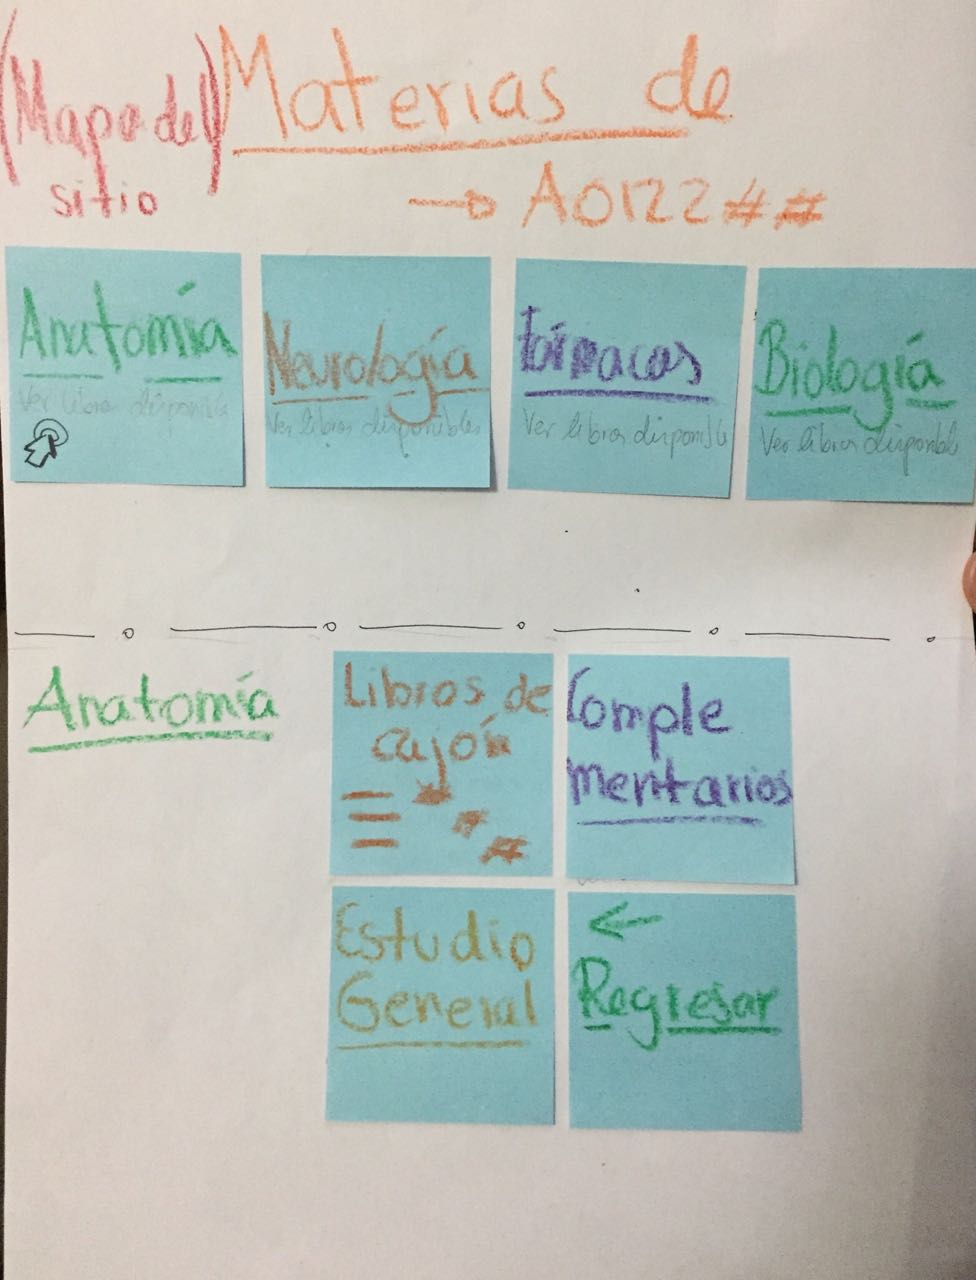 (Mapa del)
sitio
Materias de
→ A0122##
Anatomía
Ver libros disponible
Neurología
Ver libros disponibles
Fármacos
Ver libros disponible
Biología
Ver libros disponible
Anatomía
Libros de
cajón
Comple
mentarios
Estudio
General
←
Regresar